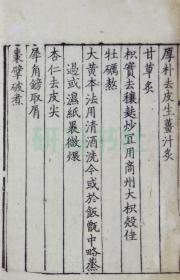 厚朴去皮生薑汁炙
甘草炙
枳實去穰麩炒宜用商州大枳殼佳
牡礪熬
大黃本法用清酒洗今或於飯甑中略蒸
過或濕紙裹微煨
杏仁去皮尖
犀角鎊取屑
棗擘破煮